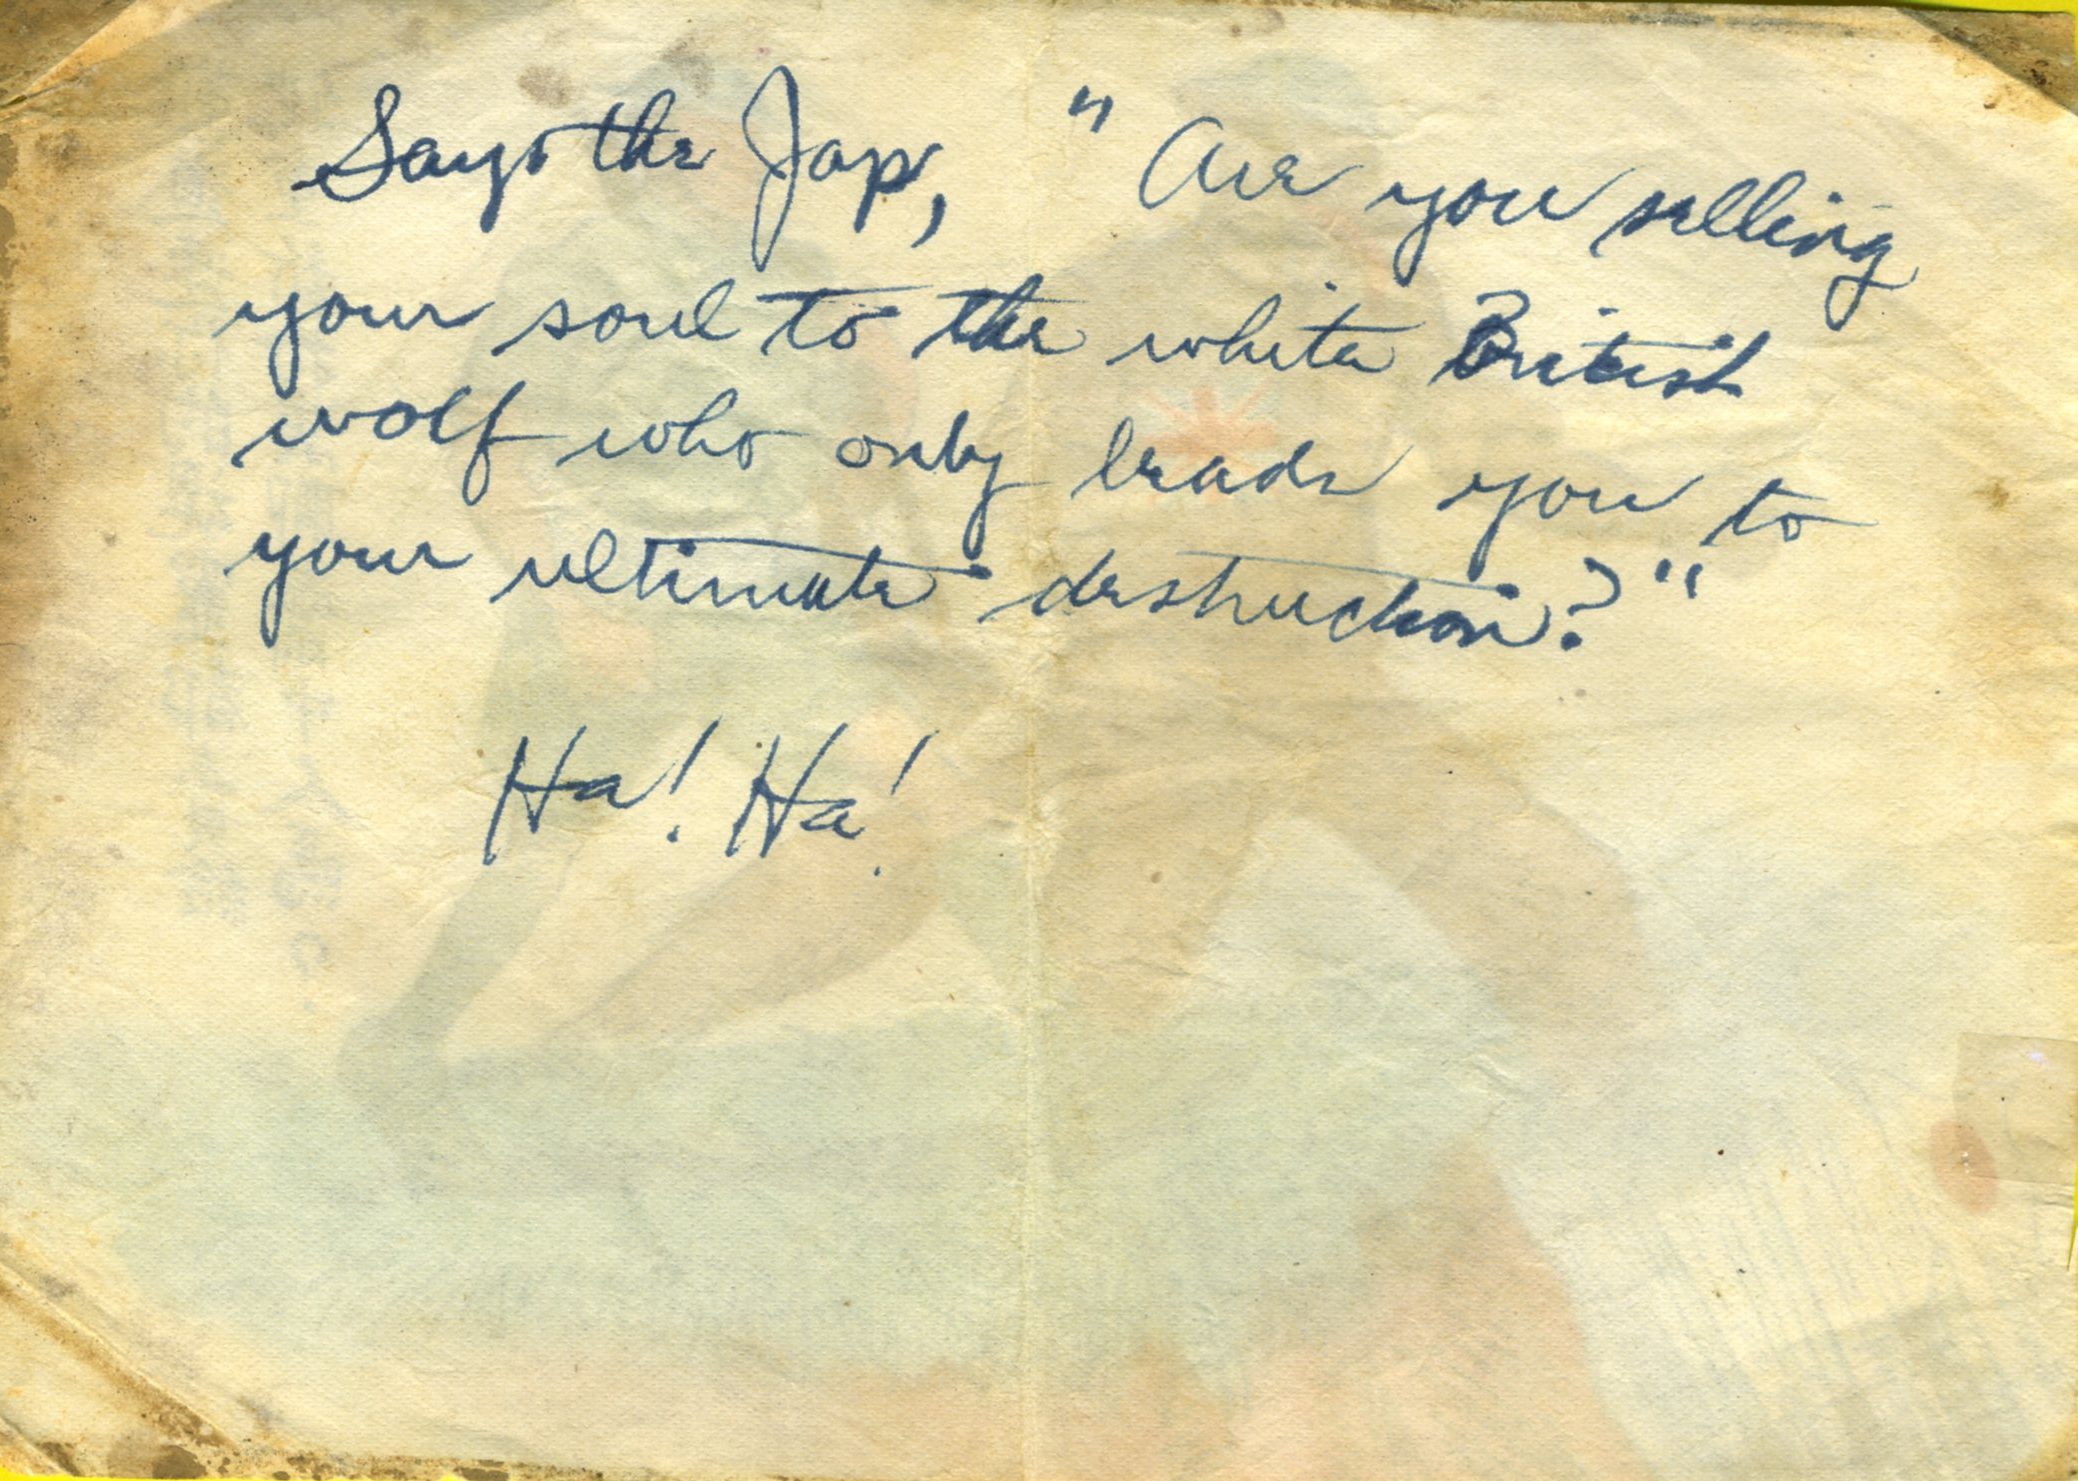 Says the Jap, "Are you selling
your soul to the white British
wolf who only leads you to
your ultimate destruction?"
Ha! Ha!